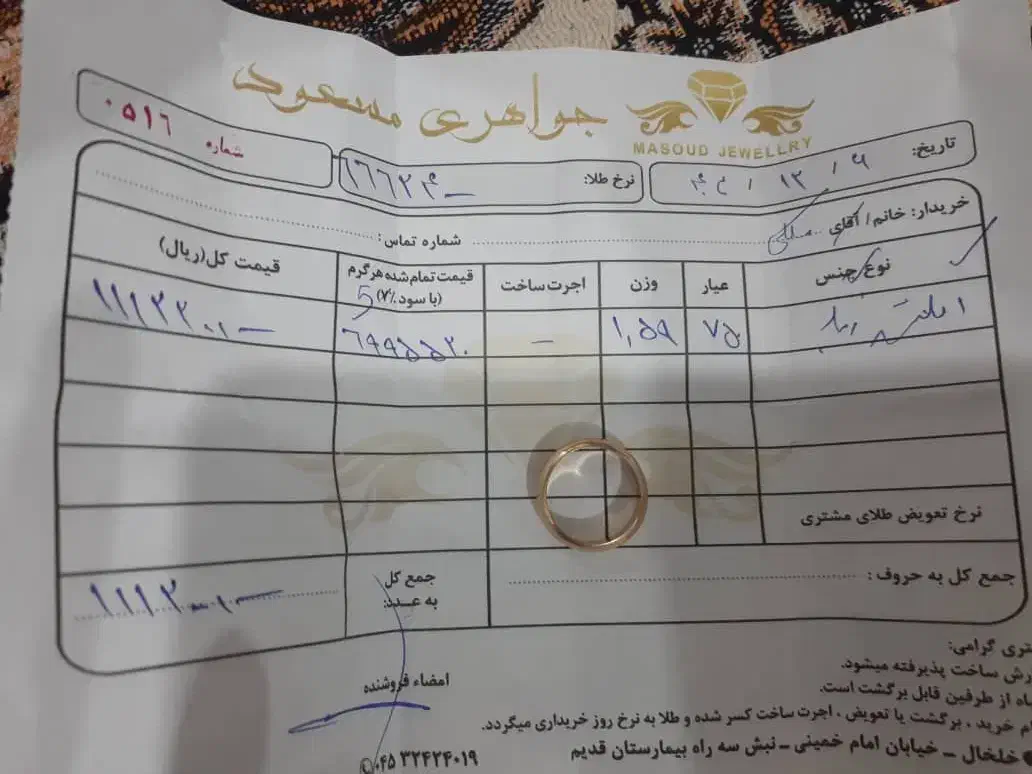 جواهری مسعود
MASOUD JEWELLRY
شماره ۰۵۱۶
تاریخ: ۱۲ / ۶
نرخ طلا:
خریدار: خانم / آقای
شماره تماس:
نوع جنس
عیار
وزن
اجرت ساخت
قیمت تمام شده هرگرم (با سود ۷٪) 5
قیمت کل(ریال)
۷۵۰
۱,۵۹
–
۶۹۹۵۵۲۰
نرخ تعویض طلای مشتری
جمع کل به حروف:
جمع کل به عدد:
امضاء فروشنده
تری گرامی:
رش ساخت پذیرفته میشود.
اه از طرفین قابل برگشت است.
م خرید ، برگشت یا تعویض ، اجرت ساخت کسر شده و طلا به نرخ روز خریداری میگردد.
خلخال – خیابان امام خمینی – نبش سه راه بیمارستان قدیم
۰۴۵ ۳۲۴۲۴۰۱۹